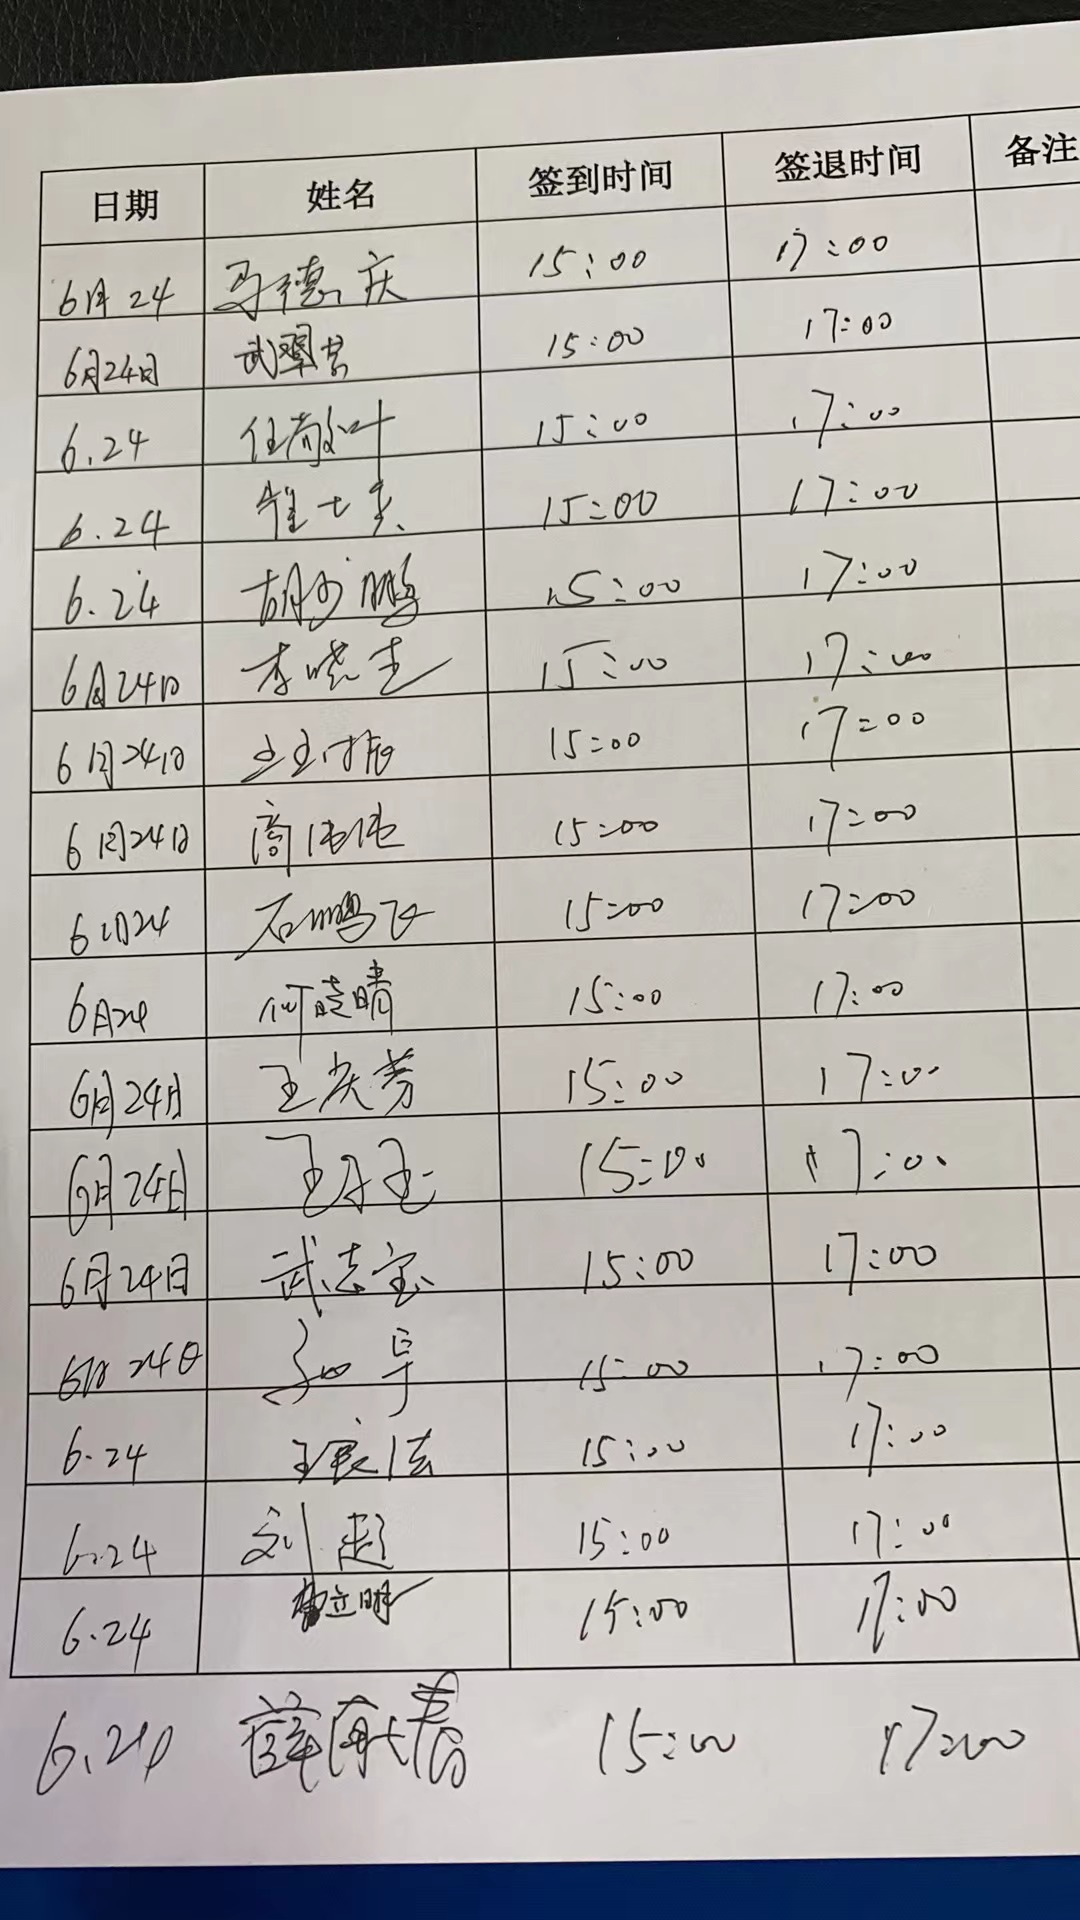 日期 姓名 签到时间 签退时间 备注
6月24 马德庆 15:00 17:00
6月24日 武翠芸 15:00 17:00
6.24 任敬叶 15:00 17:00
6.24 崔士 15:00 17:00
6.24 胡少鹏 15:00 17:00
6月24日 李晓 15:00 17:00
6月24日 15:00 17:00
6月24日 商伟伟 15:00 17:00
6月24 石鹏飞 15:00 17:00
6月24 何晓晴 15:00 17:00
6月24日 王庆芳 15:00 17:00
6月24日 王 15:00 17:00
6月24日 武志宝 15:00 17:00
6月24日 15:00 17:00
6.24 王良法 15:00 17:00
6.24 刘超 15:00 17:00
6.24 立明 15:00 17:00
6.24 薛 春 15:00 17:00